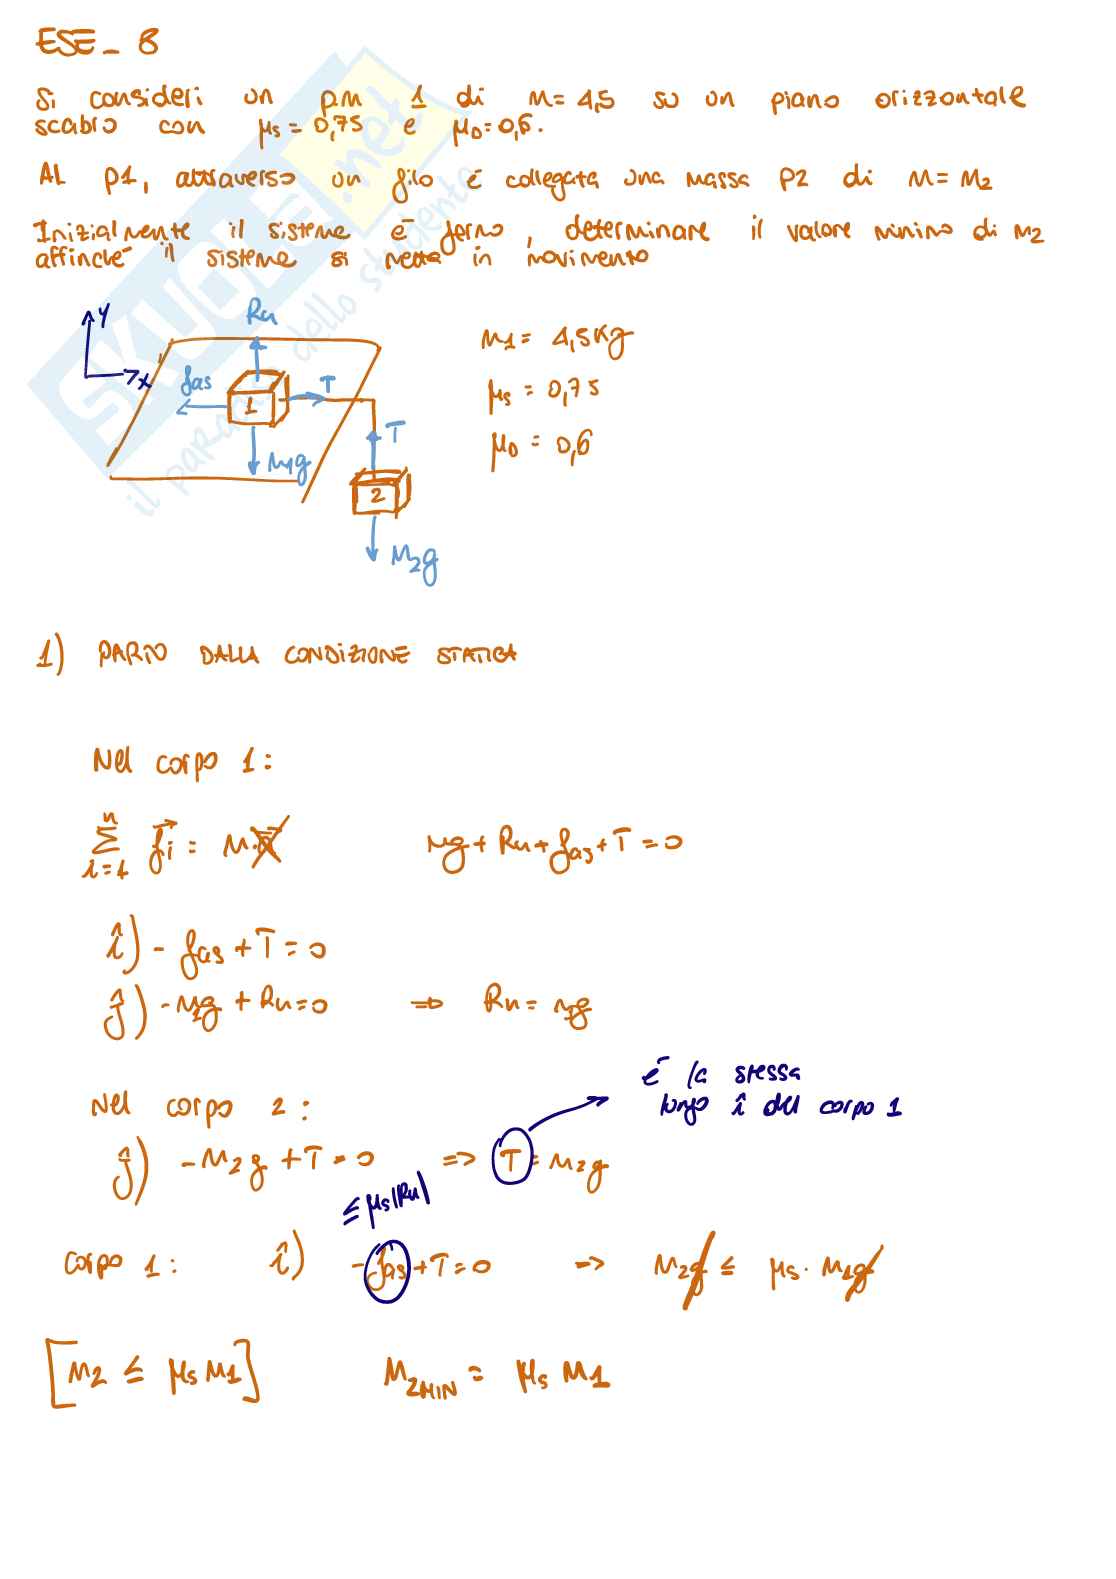 ESE_ 8
Si consideri un p.m 1 di m= 4,5 su un piano orizzontale
scabro con μs = 0,75 e μD=0,6.
AL p1, attraverso un filo è collegata una massa P2 di m= m2
Inizialmente il sistema è fermo, determinare il valore minimo di m2
affinché il sistema si metta in movimento
y
x
Rn
fas
1
T
m1g
T
2
m2g
m1= 4,5Kg
μs = 0,75
μD = 0,6
SKUOLA.net
il paradiso dello studente
1) PARTO DALLA CONDIZIONE STATICA
Nel corpo 1:
n
Σ fi = m·a
i=1
mg + Rn + fas + T = 0
î) - fas + T = 0
ĵ) - m1g + Rn = 0 => Rn = m1g
è la stessa
lungo î del corpo 1
Nel corpo 2:
ĵ) - m2g + T = 0 => T = m2g
≤ μs|Rn|
corpo 1: î) - fas + T = 0 => m2g ≤ μs · m1g
[m2 ≤ μs m1] m2MIN = μs m1